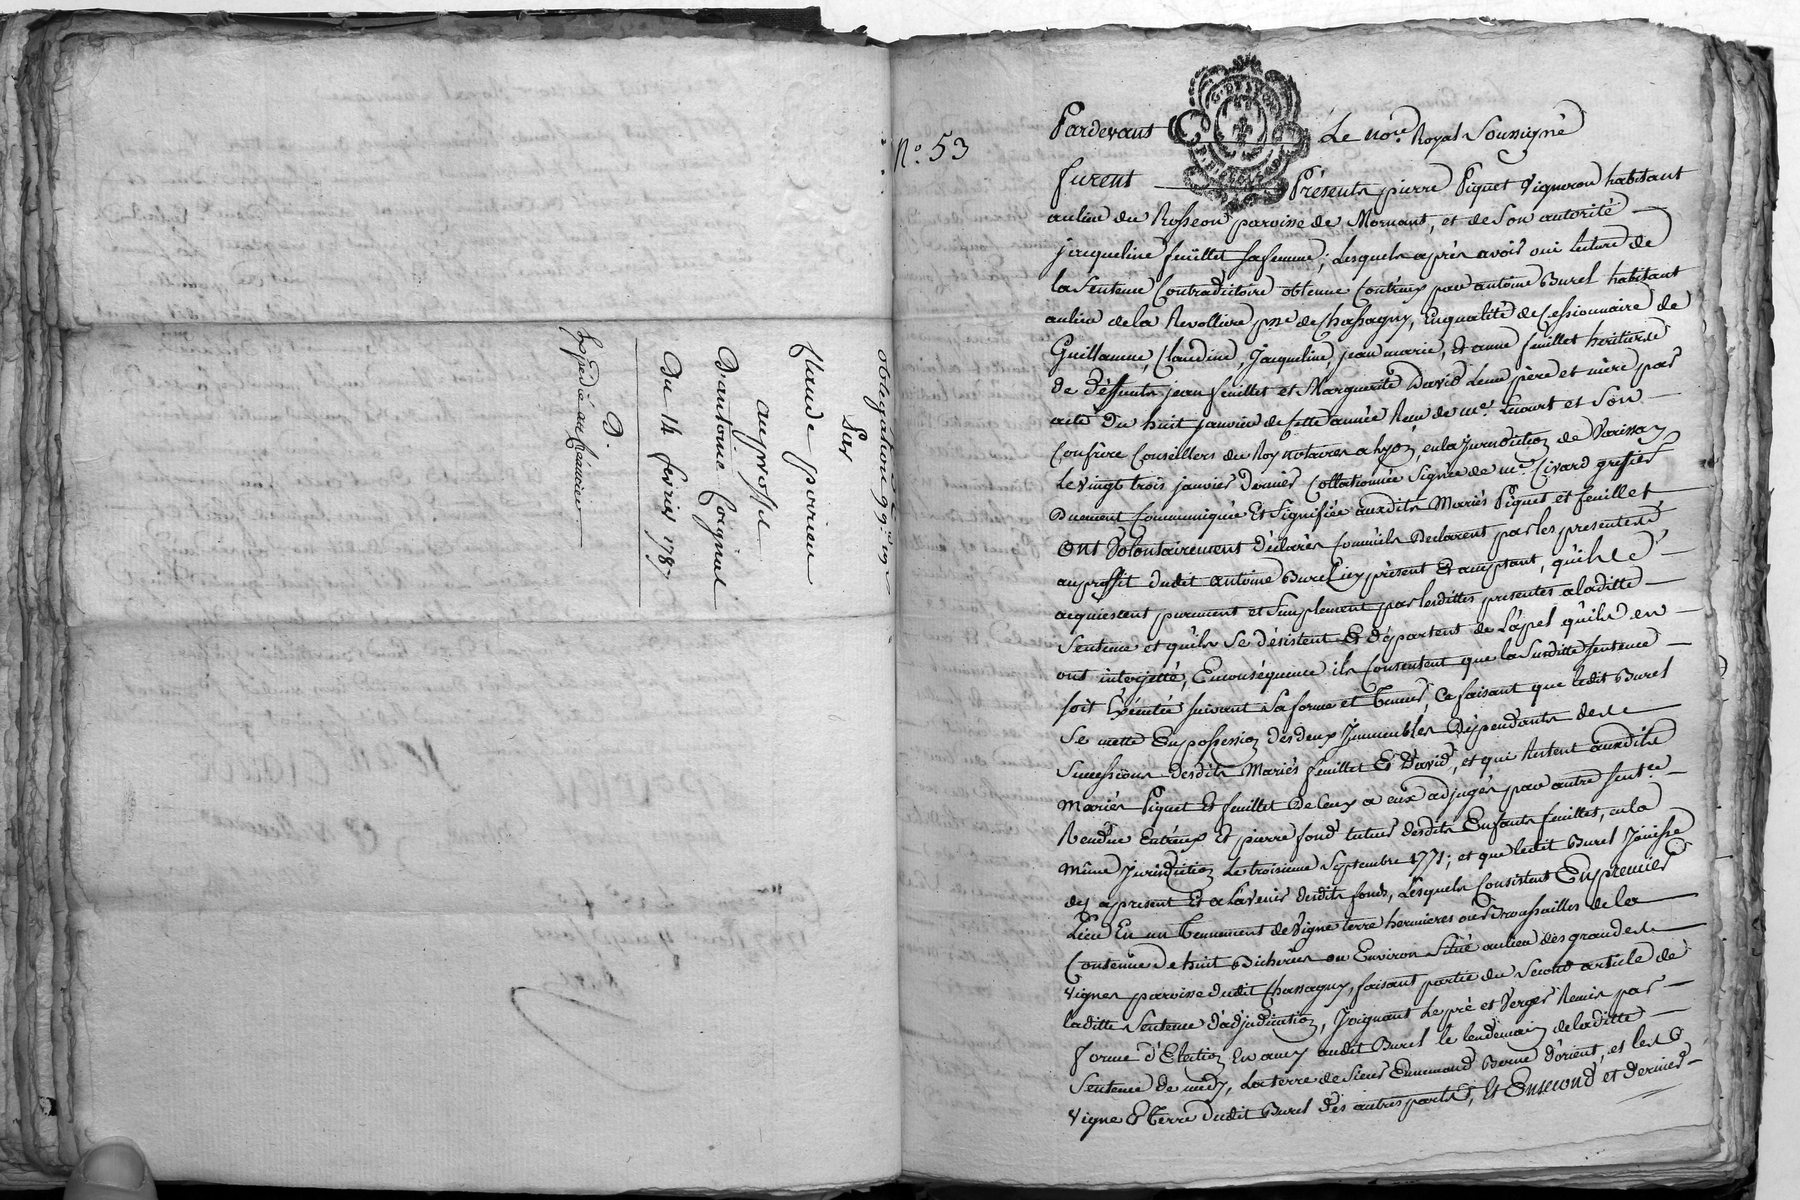 obligation
Sur
Claude poirieu
au proffit
D'antoine Coignet
Du 14 fevrier 1787
D.
Expédié au Créancier
N.° 53
Pardevant Le no.re Royal Soussigné
furent Présents pierre Piquet Vigneron habitant
au lieu du Rosseon paroisse de Mornant, et de Son autorité
jacqueline feuillet Sa femme, Lesquels après avoir oui lecture de
la Sentence Contradictoire obtenue Contr'eux par antoine Burel habitant
au lieu de la Revolliere p.sse de Chassagny, En qualité de Cessionnaire de
Guillaume, Claudine, Jacqueline, jean marie, Et anne feuillet heritiers
de deffunts jean feuillet et Marguerite David Leurs père et mère par
acte du huit janvier de Cette année Recu de m.e Lucourt et Son
Confrère Conseillers du Roy notaires a Lyon, en la Jurisdiction de Varissan
Le vingt trois janvier dernier Collationnée Signée de m.e Civard greffier
Duement Communiquée Et Signifiée auxdits Mariés Piquet et feuillet
Ont Volontairement déclarés Comm'ils Declarent par les presentes
au proffit dudit antoine Burel icy présent Et acceptant, qu'ils
acquiescent purement et Simplement par lesdittes presentes a laditte
Sentence et qu'ils Se désistent Et départent de L'apel qu'ils en
ont interjetté, En conséquence ils Consentent que la Susditte Sentence
soit Exécutée suivant Sa forme et teneur, Ce faisant que ledit Burel
Se mette En possession des deux Jmmeubles dépendants des
Successions desdits Mariés feuillet Et David, et qui Restent auxdits
Mariés Piquet Et feuillet De Ceux a eux adjugés par autre Sent.ce
Rendue Entr'eux Et pierre fond tuteur desdits Enfants feuillet, en la
même Jurisdiction Le troisieme Septembre 1771; et que ledit Burel Jouisse
des apresent Et a L'avenir desdits fonds, Lesquels Consistent En premier
Lieu En un tennement de Vigne terre hermieres ou Broussailles de la
Contenue de huit Bicherées ou Environ Situé au lieu des grandes
Vignes paroisse dudit Chassagny, faisant partie du Second article de
laditte Sentence d'adjudication, Joignant Le pré et Verger Remis par
forme d'Election En amy audit Burel le lendemain de laditte
Sentence de midy, La terre de Sieur Ennemond Berne d'orient, et les
Vigne Et terre dudit Burel des autres parts, Et En second et dernier